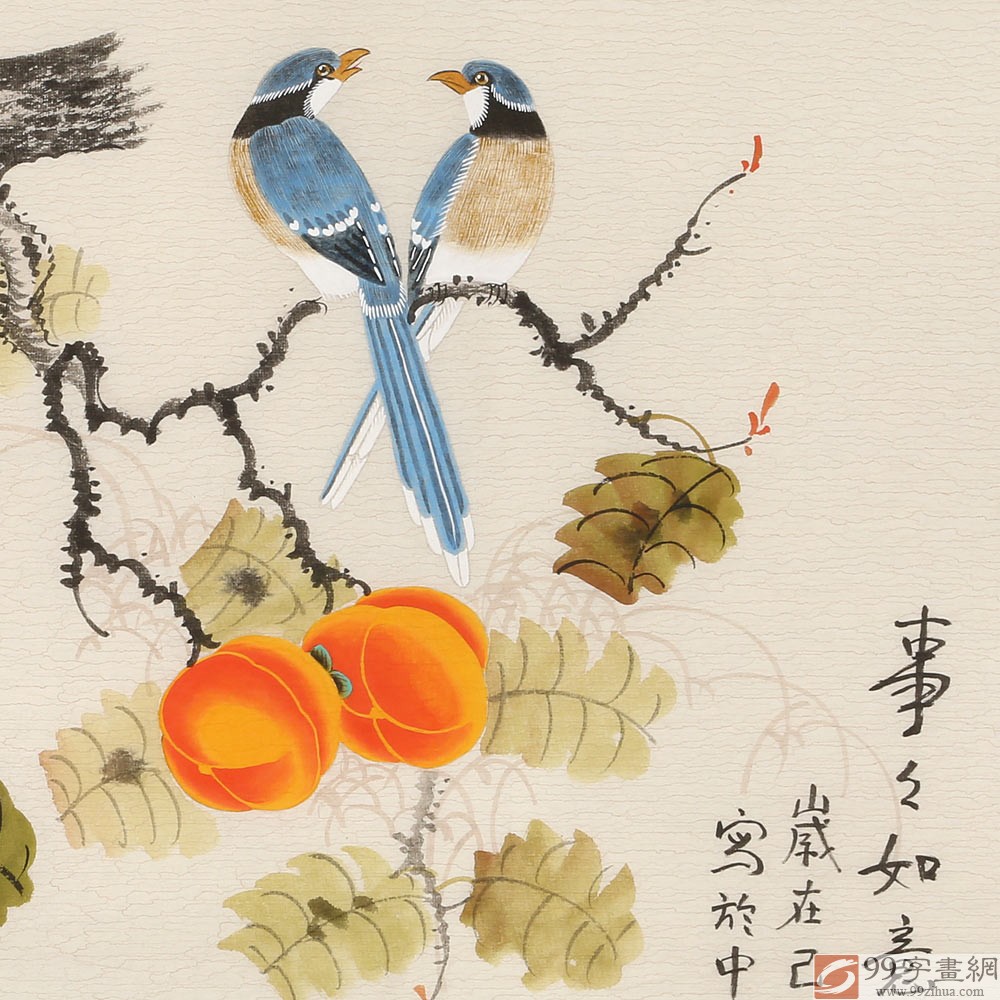 事々如意
歲在己
寫於中
99字畫網
www.99zihua.com